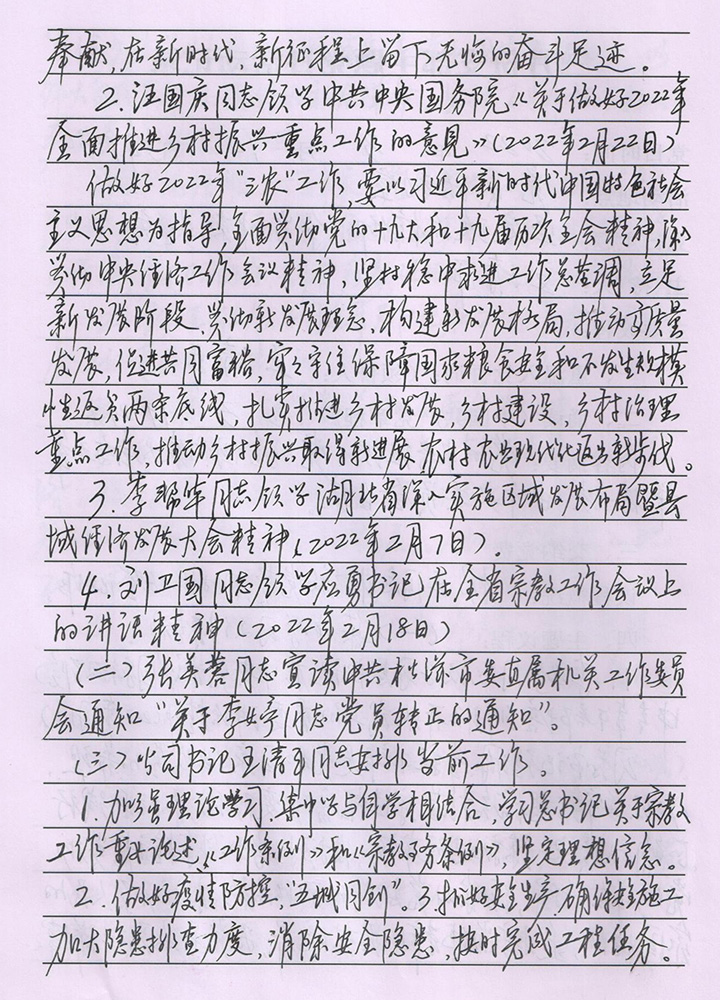 奉献，在新时代，新征程上留下无悔的奋斗足迹。
2.汪国庆同志领学中共中央国务院《关于做好2022年
全面推进乡村振兴重点工作的意见》（2022年2月22日）
做好2022年“三农”工作，要以习近平新时代中国特色社会
主义思想为指导，全面贯彻党的十九大和十九届历次全会精神，深入
贯彻中央经济工作会议精神，坚持稳中求进工作总基调，立足
新发展阶段、贯彻新发展理念、构建新发展格局、推动高质量
发展，促进共同富裕，牢牢守住保障国家粮食安全和不发生规模
性返贫两条底线，扎实推进乡村发展，乡村建设，乡村治理
重点工作，推动乡村振兴取得新进展，农村农业现代化迈出新步伐。
3.李帮华同志领学湖北省深入实施区域发展布局暨县
城经济发展大会精神（2022年2月7日）.
4.刘卫国同志领学应勇书记在全省宗教工作会议上
的讲话精神（2022年2月18日）
（二）张美蓉同志宣读中共松滋市委直属机关工作委员
会通知“关于李婷同志党员转正的通知”。
（三）公司书记王清平同志安排当前工作。
1.加强理论学习.集中学与自学相结合，学习总书记关于宗教
工作重要论述、《工作条例》和《宗教事务条例》，坚定理想信念。
2.做好疫情防控，“五城同创”。3.抓好安全生产.确保安全施工
加大隐患排查力度，消除安全隐患，按时完成工程任务。